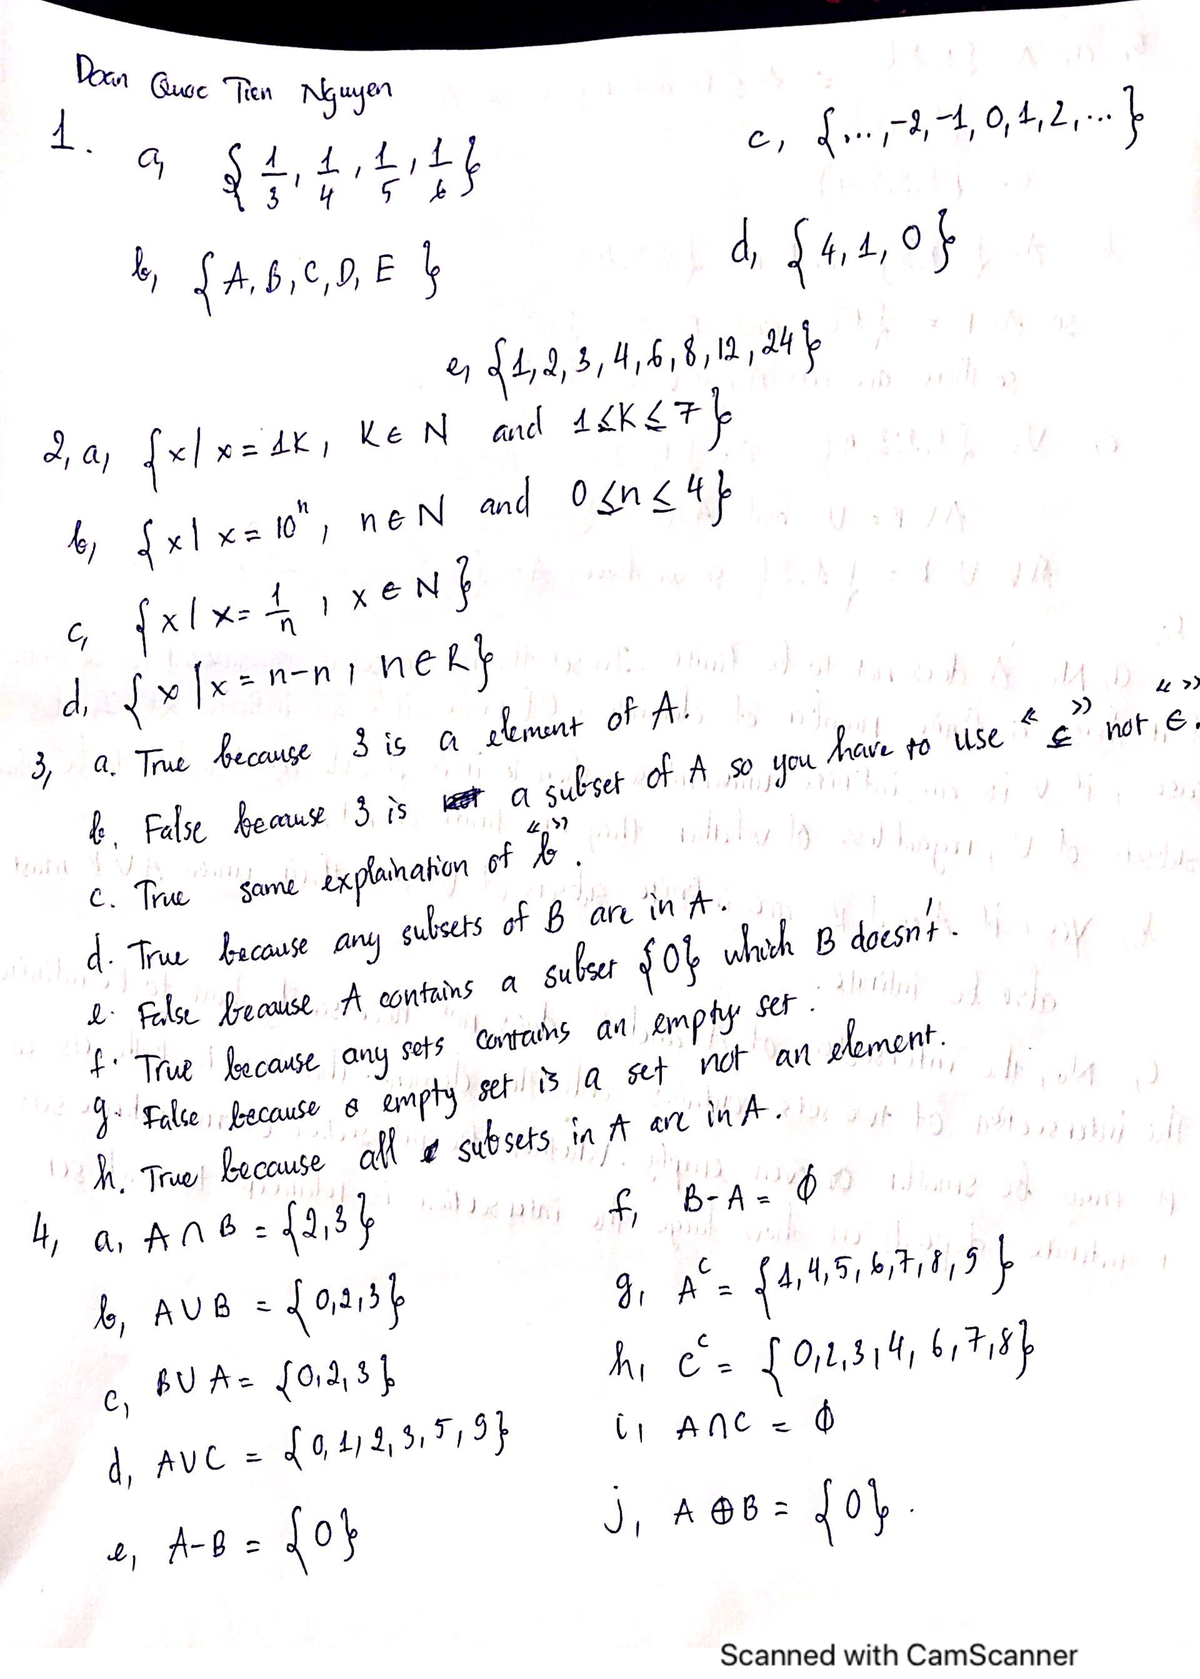 Doan Quoc Tien Nguyen
1. a, { 1/3, 1/4, 1/5, 1/6 }
c, {..., -2, -1, 0, 1, 2, ... }
b, { A, B, C, D, E }
d, { 4, 1, 0 }
e, { 1, 2, 3, 4, 6, 8, 12, 24 }
2, a, { x | x = 1K, K ∈ N and 1 ≤ K ≤ 7 }
b, { x | x = 10^n, n ∈ N and 0 ≤ n ≤ 4 }
c, { x | x = 1/n, x ∈ N }
d, { x | x = n-n, n ∈ R }
3, a. True because 3 is a element of A.
b. False because 3 is a subset of A so you have to use “⊆” not “∈”.
c. True same explaination of “b”.
d. True because any subsets of B are in A.
e. False because A contains a subset {0} which B doesn't.
f. True because any sets contains an empty set.
g. False because a empty set is a set not an element.
h. True because all subsets in A are in A.
4, a, A ∩ B = {2,3}
f, B - A = ∅
b, A ∪ B = {0,2,3}
g, A^c = {1,4,5,6,7,8,9}
c, B ∪ A = {0,2,3}
h, C^c = {0,2,3,4,6,7,8}
d, A ∪ C = {0,1,2,3,5,9}
i, A ∩ C = ∅
e, A - B = {0}
j, A ⊕ B = {0}.
Scanned with CamScanner